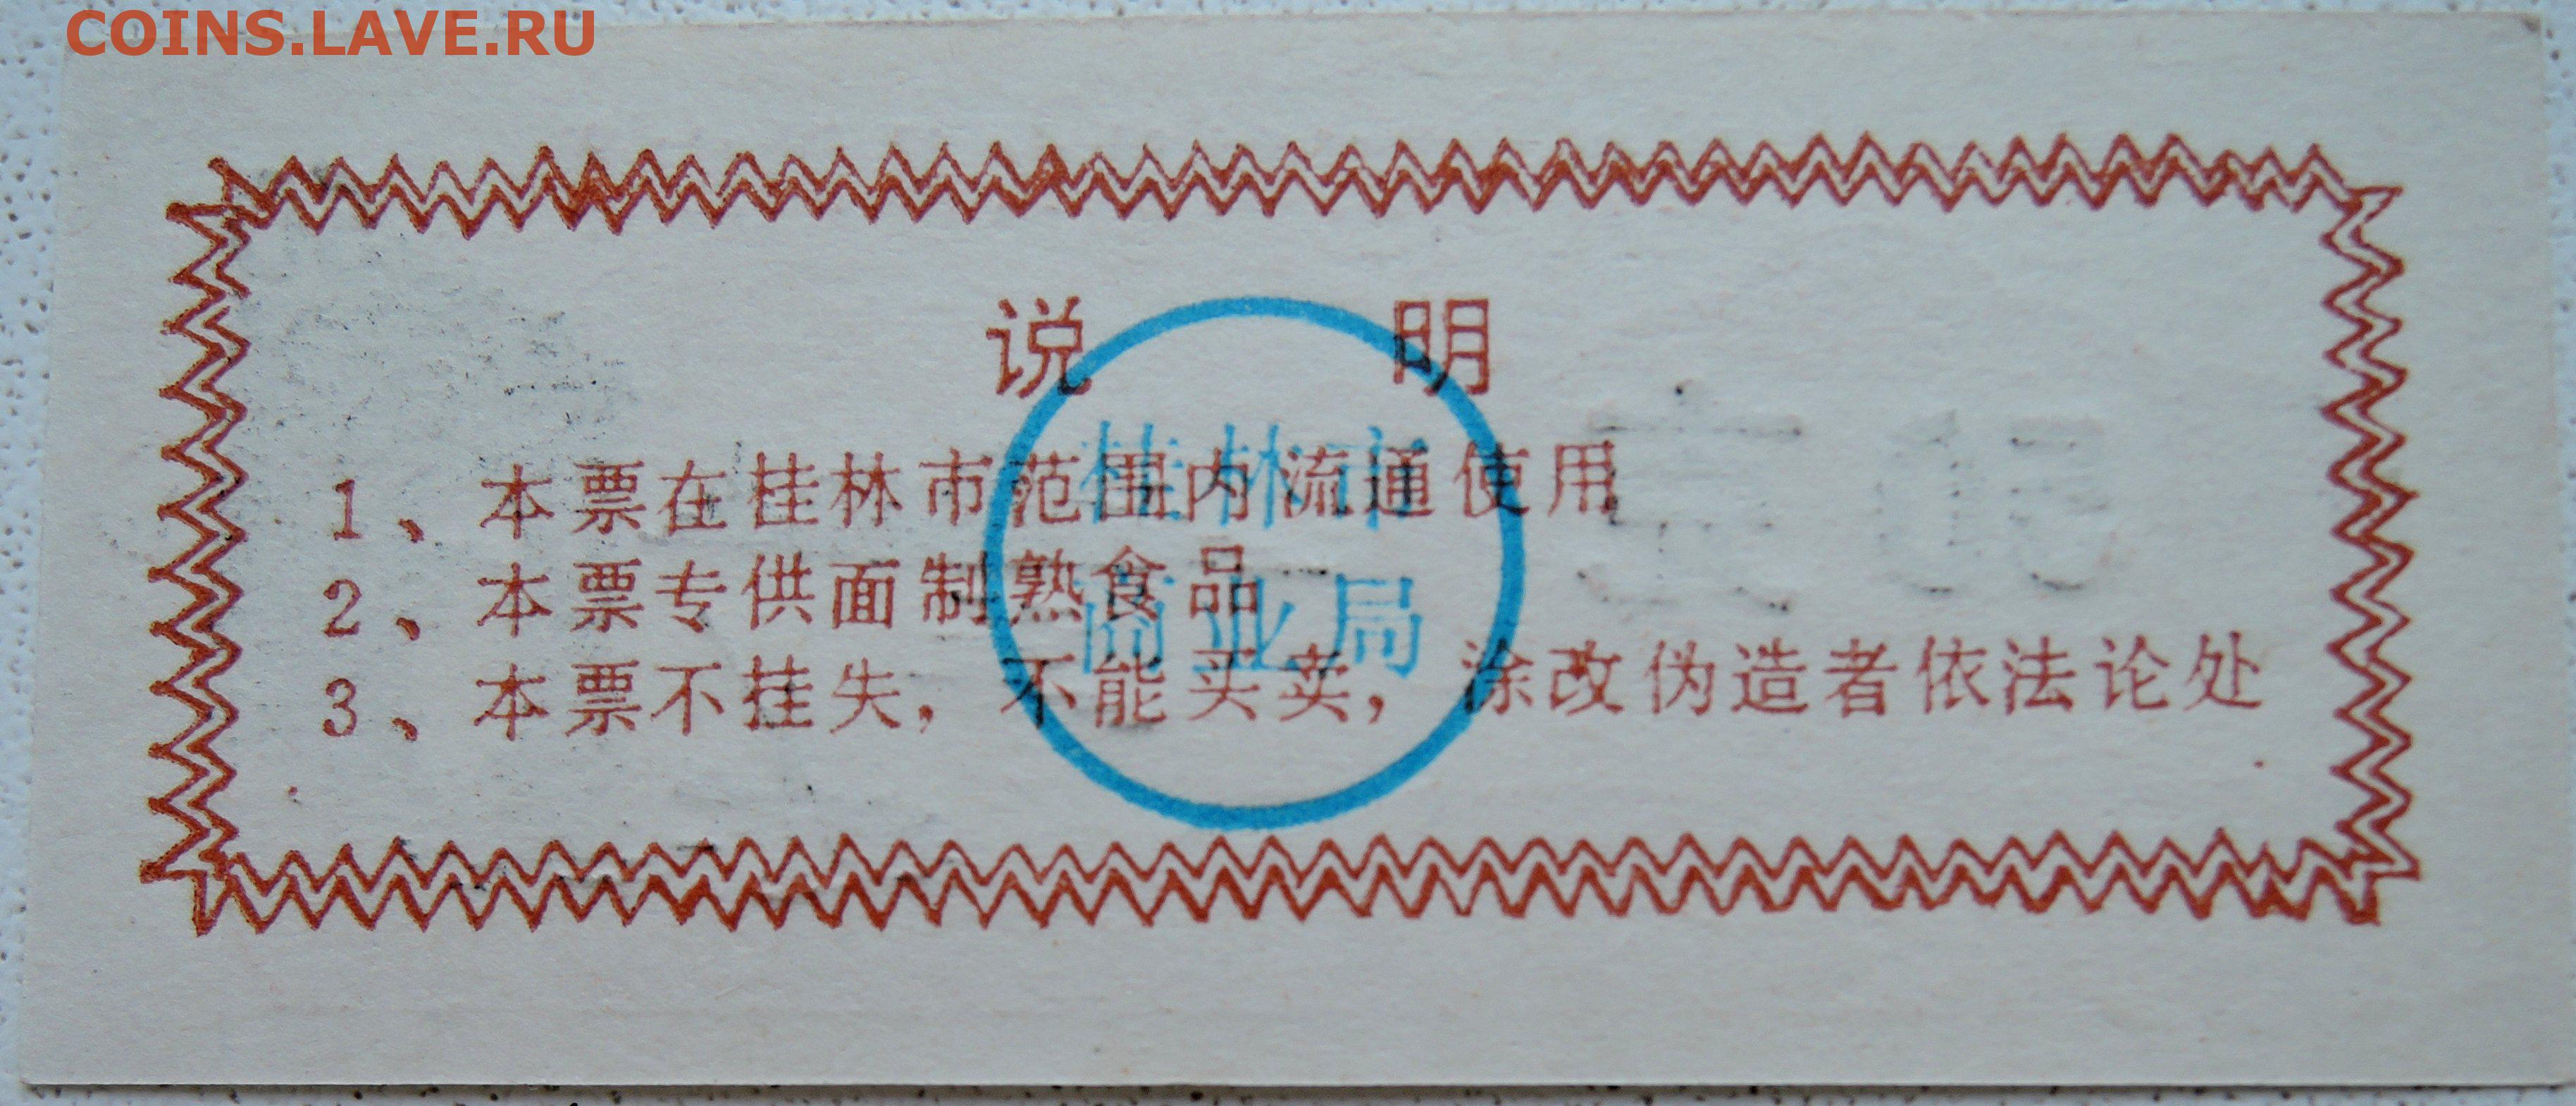 COINS.LAVE.RU
说 明
1、本票在桂林市范围内流通使用
2、本票专供面制熟食品
3、本票不挂失,不能买卖,涂改伪造者依法论处
桂林市
商业局